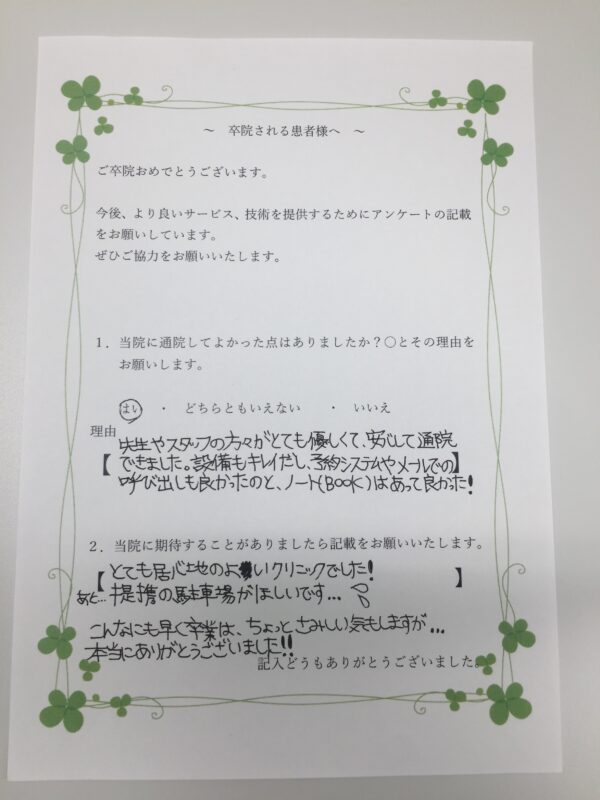 ～ 卒院される患者様へ ～
ご卒院おめでとうございます。
今後、より良いサービス、技術を提供するためにアンケートの記載
をお願いしています。
ぜひご協力をお願いいたします。
１．当院に通院してよかった点はありましたか？○とその理由を
お願いします。
はい ・ どちらともいえない ・ いいえ
理由
先生やスタッフの方々がとても優しくて、安心して通院
【できました。設備もキレイだし、予約システムやメールでの】
呼び出しも良かったのと、ノート(BOOK)はあって良かった!
２．当院に期待することがありましたら記載をお願いいたします。
【とても居心地のよいクリニックでした! 】
あと…提携の駐車場がほしいです…
こんなにも早く卒業は、ちょっとさみしい気もしますが…
本当にありがとうございました!!
記入どうもありがとうございました。